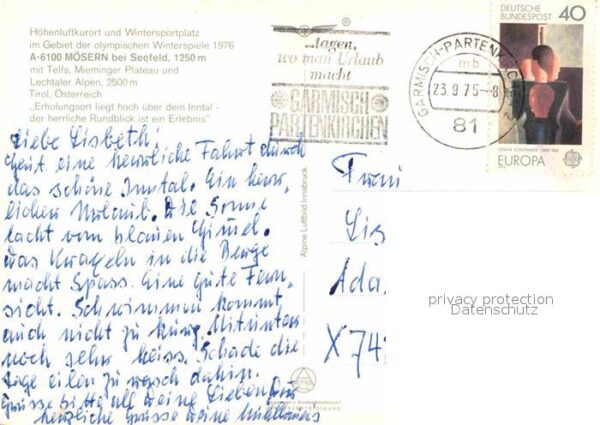 Höhenluftkurort und Wintersportplatz
im Gebiet der olympischen Winterspiele 1976
A-6100 MÖSERN bei Seefeld, 1250 m
mit Telfs, Mieminger Plateau und
Lechtaler Alpen, 2500 m
Tirol, Österreich
„Erholungsort liegt hoch über dem Inntal -
der herrliche Rundblick ist ein Erlebnis"
...tagen,
wo man Urlaub
macht
GARMISCH
PARTENKIRCHEN
GARMISCH-PARTENKIRCHEN
mb
23.9.75-8
81
DEUTSCHE
BUNDESPOST
40
EUROPA
Liebe Lisbeth!
eine herrliche Fahrt durch
das schöne Inntal. Ein herr-
licher Urlaub. Die Sonne
lacht vom blauen Himmel.
Das Kraxeln in die Berge
macht Spass. Eine gute Fern-
sicht. Schwimmen kommt
auch nicht zu kurz. Mitunter
noch sehr heiss. Schade die
Tage eilen zu rasch dahin.
Grüsse bitte all Deine Lieben
herzliche Grüsse
Alpine Luftbild Innsbruck
Lis
Ada
X 74
privacy protection
Datenschutz